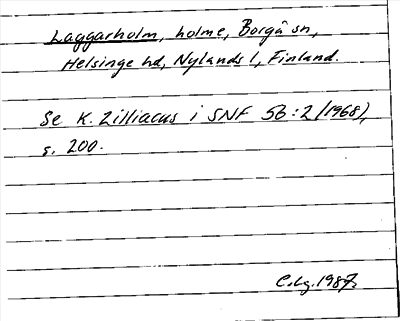 Laggarholm, holme, Borgå sn,
Helsinge hd, Nylands l, Finland.
Se K. Zilliacus i SNF 56:2 (1968),
s. 200.
C.Lg. 1987